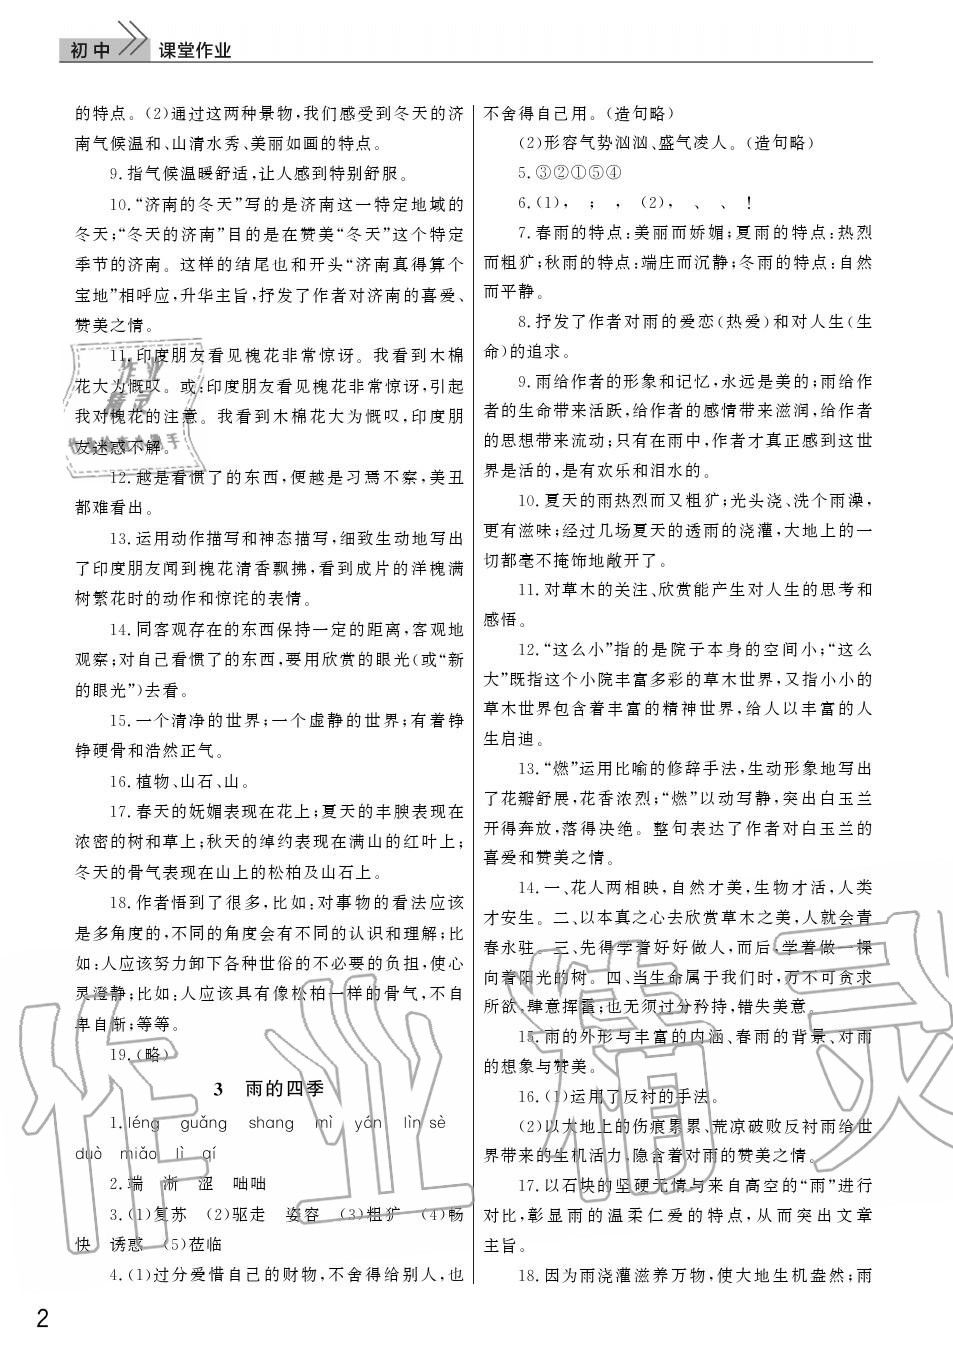 初中
课堂作业
的特点。(2)通过这两种景物,我们感受到冬天的济
南气候温和、山清水秀、美丽如画的特点。
9.指气候温暖舒适,让人感到特别舒服。
10.“济南的冬天”写的是济南这一特定地域的
冬天;“冬天的济南”目的是在赞美“冬天”这个特定
季节的济南。这样的结尾也和开头“济南真得算个
宝地”相呼应,升华主旨,抒发了作者对济南的喜爱、
赞美之情。
11.印度朋友看见槐花非常惊讶。我看到木棉
花大为慨叹。或:印度朋友看见槐花非常惊讶,引起
我对槐花的注意。我看到木棉花大为慨叹,印度朋
友迷惑不解。
12.越是看惯了的东西,便越是习焉不察,美丑
都难看出。
13.运用动作描写和神态描写,细致生动地写出
了印度朋友闻到槐花清香飘拂,看到成片的洋槐满
树繁花时的动作和惊诧的表情。
14.同客观存在的东西保持一定的距离,客观地
观察;对自己看惯了的东西,要用欣赏的眼光(或“新
的眼光”)去看。
15.一个清净的世界;一个虚静的世界;有着铮
铮硬骨和浩然正气。
16.植物、山石、山。
17.春天的妩媚表现在花上;夏天的丰腴表现在
浓密的树和草上;秋天的绰约表现在满山的红叶上;
冬天的骨气表现在山上的松柏及山石上。
18.作者悟到了很多,比如:对事物的看法应该
是多角度的,不同的角度会有不同的认识和理解;比
如:人应该努力卸下各种世俗的不必要的负担,使心
灵澄静;比如:人应该具有像松柏一样的骨气,不自
卑自渐;等等。
19.(略)
3 雨的四季
1.léng guǎng shang mì yán lìn sè
duò miǎo lì qí
2.端 淅 涩 咄咄
3.(1)复苏 (2)驱走 姿容 (3)粗犷 (4)畅
快 诱惑 (5)莅临
4.(1)过分爱惜自己的财物,不舍得给别人,也
不舍得自己用。(造句略)
(2)形容气势汹汹、盛气凌人。(造句略)
5.③②①⑤④
6.(1), ; , (2), 、 、 !
7.春雨的特点:美丽而娇媚;夏雨的特点:热烈
而粗犷;秋雨的特点:端庄而沉静;冬雨的特点:自然
而平静。
8.抒发了作者对雨的爱恋(热爱)和对人生(生
命)的追求。
9.雨给作者的形象和记忆,永远是美的;雨给作
者的生命带来活跃,给作者的感情带来滋润,给作者
的思想带来流动;只有在雨中,作者才真正感到这世
界是活的,是有欢乐和泪水的。
10.夏天的雨热烈而又粗犷;光头浇、洗个雨澡,
更有滋味;经过几场夏天的透雨的浇灌,大地上的一
切都毫不掩饰地敞开了。
11.对草木的关注、欣赏能产生对人生的思考和
感悟。
12.“这么小”指的是院子本身的空间小;“这么
大”既指这个小院丰富多彩的草木世界,又指小小的
草木世界包含着丰富的精神世界,给人以丰富的人
生启迪。
13.“燃”运用比喻的修辞手法,生动形象地写出
了花瓣舒展,花香浓烈;“燃”以动写静,突出白玉兰
开得奔放,落得决绝。整句表达了作者对白玉兰的
喜爱和赞美之情。
14.一、花人两相映,自然才美,生物才活,人类
才安生。二、以本真之心去欣赏草木之美,人就会青
春永驻。三、先得学着好好做人,而后,学着做一棵
向着阳光的树。四、当生命属于我们时,万不可贪求
所欲,肆意挥霍;也无须过分矜持,错失美意。
15.雨的外形与丰富的内涵、春雨的背景、对雨
的想象与赞美。
16.(1)运用了反衬的手法。
(2)以大地上的伤痕累累、荒凉破败反衬雨给世
界带来的生机活力,隐含着对雨的赞美之情。
17.以石块的坚硬无情与来自高空的“雨”进行
对比,彰显雨的温柔仁爱的特点,从而突出文章
主旨。
18.因为雨浇灌滋养万物,使大地生机盎然;雨
2
作业精灵